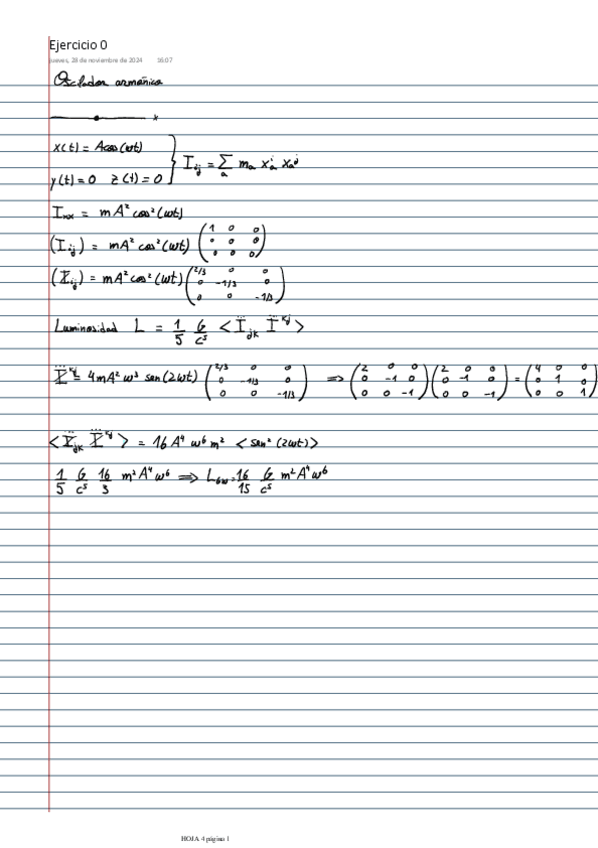 Ejercicio 0
jueves, 28 de noviembre de 2024 16:07
Oscilador armónico
x
x(t) = A cos(ωt)
y(t) = 0 z(t) = 0 } I_ij = Σ_a m_a x_a^i x_a^j
I_xx = mA² cos²(ωt)
(I_ij) = mA² cos²(ωt) (1 0 0; 0 0 0; 0 0 0)
(Ī_ij) = mA² cos²(ωt) (2/3 0 0; 0 -1/3 0; 0 0 -1/3)
Luminosidad L = 1/5 G/c⁵ < I_jk I^kj >
I^kj = 4mA² ω³ sen(2ωt) (2/3 0 0; 0 -1/3 0; 0 0 -1/3) ⇒ (2 0 0; 0 -1 0; 0 0 -1) (2 0 0; 0 -1 0; 0 0 -1) = (4 0 0; 0 1 0; 0 0 1)
< I_jk I^kj > = 16 A⁴ ω⁶ m² < sen²(2ωt) >
1/5 G/c⁵ 16/3 m² A⁴ ω⁶ ⇒ L_GW = 16/15 G/c⁵ m² A⁴ ω⁶
HOJA 4 página 1